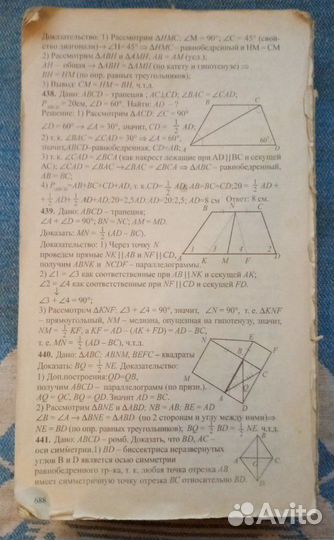 Доказательство: 1) Рассмотрим ΔHMC, ∠M = 90°, ∠C = 45° (свой-
ство диагонали)→∠H = 45° ⇒ ΔHMC – равнобедренный и HM = CM
2) Рассмотрим ΔABH и ΔAMH, AB = AM (усл.);
AH – общая ⇒ ΔABH = ΔAMH (по катету и гипотенузе) ⇒
BH = HM (по опр. равных треугольников);
3) Вывод: CM = HM = BH, ч.т.д.
438. Дано: ABCD – трапеция ; AC⊥CD, ∠BAC = ∠CAD;
P = 20см, ∠D = 60°. Найти: AD – ?
Решение: 1) Рассмотрим ΔACD: ∠C = 90°
∠D = 60° ⇒ ∠A = 30°, значит, CD = 1/2 AD;
2) т. к. ∠BAC = ∠CAD = 30° ⇒ ∠A = 60°,
значит, ABCD–равнобедренная, CD=AB;
3) т. к. ∠CAD = ∠BCA (как накрест лежащие при AD||BC и секущей
AC); ∠CAD = ∠BAC ⇒ ∠BAC = ∠BCA ⇒ ΔABC– равнобедренный,
AB = BC;
4) P =AB+BC+CD+AD, т. к. CD= 1/2 AD, AB=BC=CD; 20= 1/2 AD +
+ 1/2 AD+ 1/2 AD+AD; 20=2,5AD; AD=20:2,5; AD=8 см Ответ: 8 см.
439. Дано: ABCD – трапеция;
∠A + ∠D = 90°; BN = NC; AM = MD.
Доказать: MN = 1/2 (AD – BC).
Доказательство: 1) Через точку N
проведем прямые NK || AB и NF || CD,
получим ABNK и NCDF – параллелограммы.
2) ∠1 = ∠3 как соответственные при AB || NK и секущей AK;
∠2 = ∠4 как соответственные при NF || CD и секущей FD.
∠3 + ∠4 = 90°;
3) Рассмотрим ΔKNF: ∠3 + ∠4 = 90°, значит, ∠N = 90°, т. е. ΔKNF
– прямоугольный, NM – медиана, опущенная на гипотенузу, значит,
NM = 1/2 KF, а KF = AD – (AK + FD) = AD – BC,
т. е. MN = 1/2 (AD – BC), ч.т.д.
440. Дано: ΔABC; ABNM, BEFC – квадраты
Доказать: BQ = 1/2 NE. Доказательство:
1) Доп.построения:QD=QB,
получим ABCD – параллелограмм (по призн.).
AQ = QC, BQ = QD. Значит AD = BC.
2) Рассмотрим ΔBNE и ΔABD; NB = AB; BE = AD
∠B = ∠A ⇒ ΔBNE = ΔABD (по 2 сторонам и углу между ними)⇒
NE = BD (по опр. равных треугольников); BQ = 1/2 BD = 1/2 NE, ч.т.д.
441. Дано: ABCD – ромб. Доказать, что BD, AC –
оси симметрии.1) BD – биссектриса неразвернутых
углов B и D является осью симметрии
равнобедренного тр-ка, т. к. любая точка отрезка AB
имеет симметричную точку отрезка BC относительно BD.
688
Avito